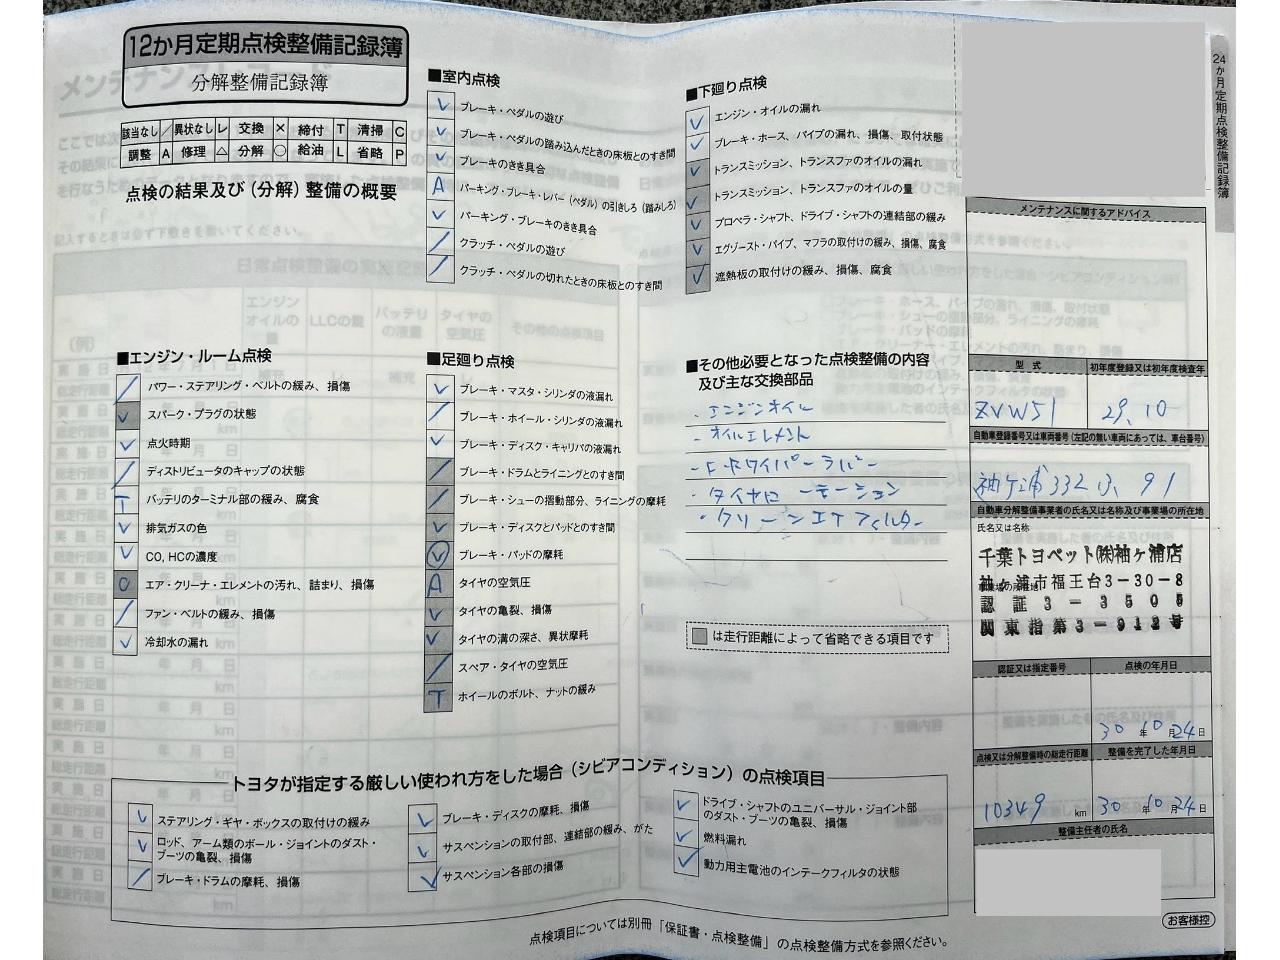 12か月定期点検整備記録簿
分解整備記録簿
該当なし ／ 異状なし レ 交換 × 締付 T 清掃 C
調整 A 修理 △ 分解 ○ 給油 L 省略 P
点検の結果及び（分解）整備の概要
■エンジン・ルーム点検
／ パワー・ステアリング・ベルトの緩み、損傷
レ スパーク・プラグの状態
レ 点火時期
／ ディストリビュータのキャップの状態
T バッテリのターミナル部の緩み、腐食
レ 排気ガスの色
レ CO, HCの濃度
C エア・クリーナ・エレメントの汚れ、詰まり、損傷
／ ファン・ベルトの緩み、損傷
レ 冷却水の漏れ
■室内点検
レ ブレーキ・ペダルの遊び
レ ブレーキ・ペダルの踏み込んだときの床板とのすき間
レ ブレーキのきき具合
A パーキング・ブレーキ・レバー（ペダル）の引きしろ（踏みしろ）
レ パーキング・ブレーキのきき具合
／ クラッチ・ペダルの遊び
／ クラッチ・ペダルの切れたときの床板とのすき間
■足廻り点検
レ ブレーキ・マスタ・シリンダの液漏れ
／ ブレーキ・ホイール・シリンダの液漏れ
レ ブレーキ・ディスク・キャリパの液漏れ
／ ブレーキ・ドラムとライニングとのすき間
／ ブレーキ・シューの摺動部分、ライニングの摩耗
レ ブレーキ・ディスクとパッドとのすき間
レ ブレーキ・パッドの摩耗
A タイヤの空気圧
レ タイヤの亀裂、損傷
レ タイヤの溝の深さ、異状摩耗
／ スペア・タイヤの空気圧
T ホイールのボルト、ナットの緩み
■下廻り点検
レ エンジン・オイルの漏れ
レ ブレーキ・ホース、パイプの漏れ、損傷、取付状態
レ トランスミッション、トランスファのオイルの漏れ
レ トランスミッション、トランスファのオイルの量
レ プロペラ・シャフト、ドライブ・シャフトの連結部の緩み
レ エグゾースト・パイプ、マフラの取付けの緩み、損傷、腐食
レ 遮熱板の取付けの緩み、損傷、腐食
■その他必要となった点検整備の内容
及び主な交換部品
・エンジンオイル
・オイルエレメント
・F・Rワイパーラバー
・タイヤローテーション
・クリーンエアフィルター
は走行距離によって省略できる項目です
トヨタが指定する厳しい使われ方をした場合（シビアコンディション）の点検項目
レ ステアリング・ギヤ・ボックスの取付けの緩み
レ ロッド、アーム類のボール・ジョイントのダスト・
ブーツの亀裂、損傷
／ ブレーキ・ドラムの摩耗、損傷
レ ブレーキ・ディスクの摩耗、損傷
レ サスペンションの取付部、連結部の緩み、がた
レ サスペンション各部の損傷
レ ドライブ・シャフトのユニバーサル・ジョイント部
のダスト・ブーツの亀裂、損傷
レ 燃料漏れ
レ 動力用主電池のインテークフィルタの状態
点検項目については別冊「保証書・点検整備」の点検整備方式を参照ください。
24か月定期点検整備記録簿
メンテナンスに関するアドバイス
型式 初年度登録又は初年度検査年
ZVW51 29.10
自動車登録番号又は車両番号（左記の無い車両にあっては、車台番号）
袖ケ浦332 ふ 91
自動車分解整備事業者の氏名又は名称及び事業場の所在地
氏名又は名称
千葉トヨペット㈱袖ヶ浦店
袖ヶ浦市福王台3-30-8
認証3-3505
関東指第3-912号
認証又は指定番号 点検の年月日
30年10月24日
点検又は分解整備時の総走行距離 整備を完了した年月日
10349km 30年10月24日
整備主任者の氏名
お客様控